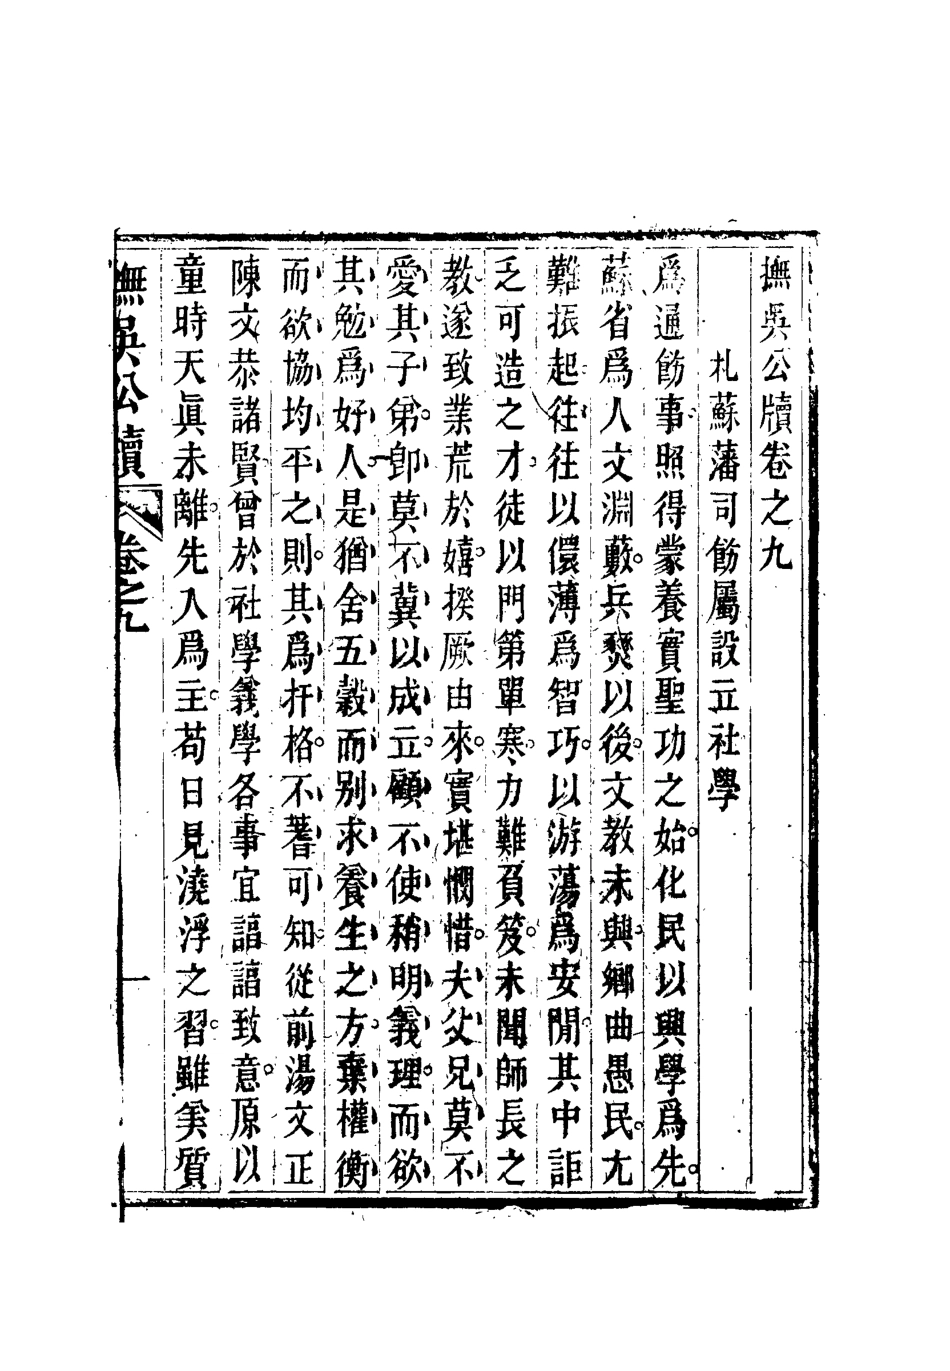 撫吳公牘卷之九
札蘇藩司飭屬設立社學
爲通飭事照得蒙養實聖功之始。化民以興學爲先。
蘇省爲人文淵藪。兵燹以後。文教未興。鄉曲愚民。尢
難振起。往往以儇薄爲智巧。以游蕩爲安閒。其中詎
乏可造之才。徒以門第單寒。力難負笈。未聞師長之
教。遂致業荒於嬉。揆厥由來。實堪憫惜。夫父兄莫不
愛其子弟。卽莫不冀以成立。顧不使稍明義理。而欲
其勉爲好人。是猶舍五穀而別求養生之方。棄權衡
而欲協均平之則。其爲扞格。不蓍可知。從前湯文正
陳文恭諸賢。曾於社學義學各事宜諄諄致意。原以
童時天眞未離。先入爲主。苟日見澆浮之習。雖美質
撫吳公牘 卷之九 一